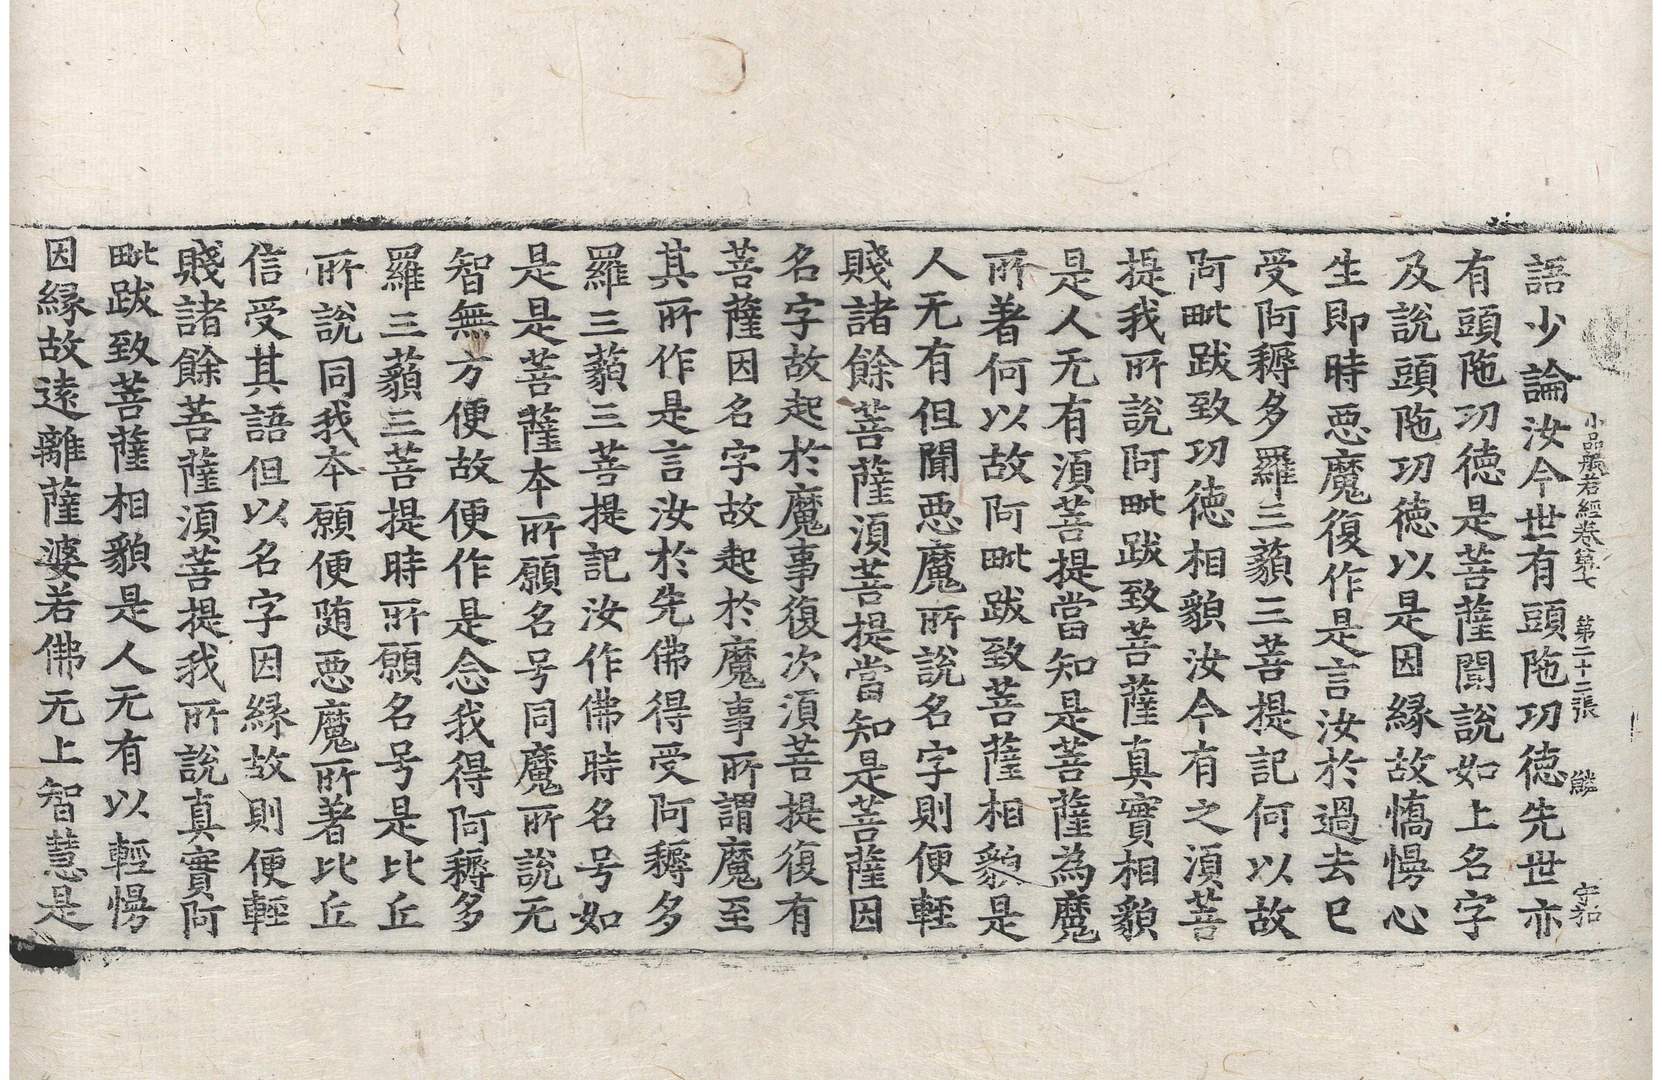 小品般若經卷第七　第二十二張　鱗　守和
語少論汝今世有頭陁功德先世亦
有頭陁功德是菩薩聞說如上名字
及說頭陁功德以是因縁故憍慢心
生即時惡魔復作是言汝於過去已
受阿耨多羅三藐三菩提記何以故
阿毗跋致功德相貌汝今有之湏菩
提我所說阿毗跋致菩薩真實相貌
是人无有湏菩提當知是菩薩為魔
所著何以故阿毗跋致菩薩相貌是
人无有但聞惡魔所說名字則便輕
賤諸餘菩薩湏菩提當知是菩薩因
名字故起於魔事復次湏菩提復有
菩薩因名字故起於魔事所謂魔至
其所作是言汝於先佛得受阿耨多
羅三藐三菩提記汝作佛時名号如
是是菩薩本所願名号同魔所說无
智無方便故便作是念我得阿耨多
羅三藐三菩提時所願名号是比丘
所說同我本願便随惡魔所著比丘
信受其語但以名字因縁故則便輕
賤諸餘菩薩湏菩提我所說真實阿
毗跋致菩薩相貌是人无有以輕慢
因縁故遠離薩婆若佛无上智慧是